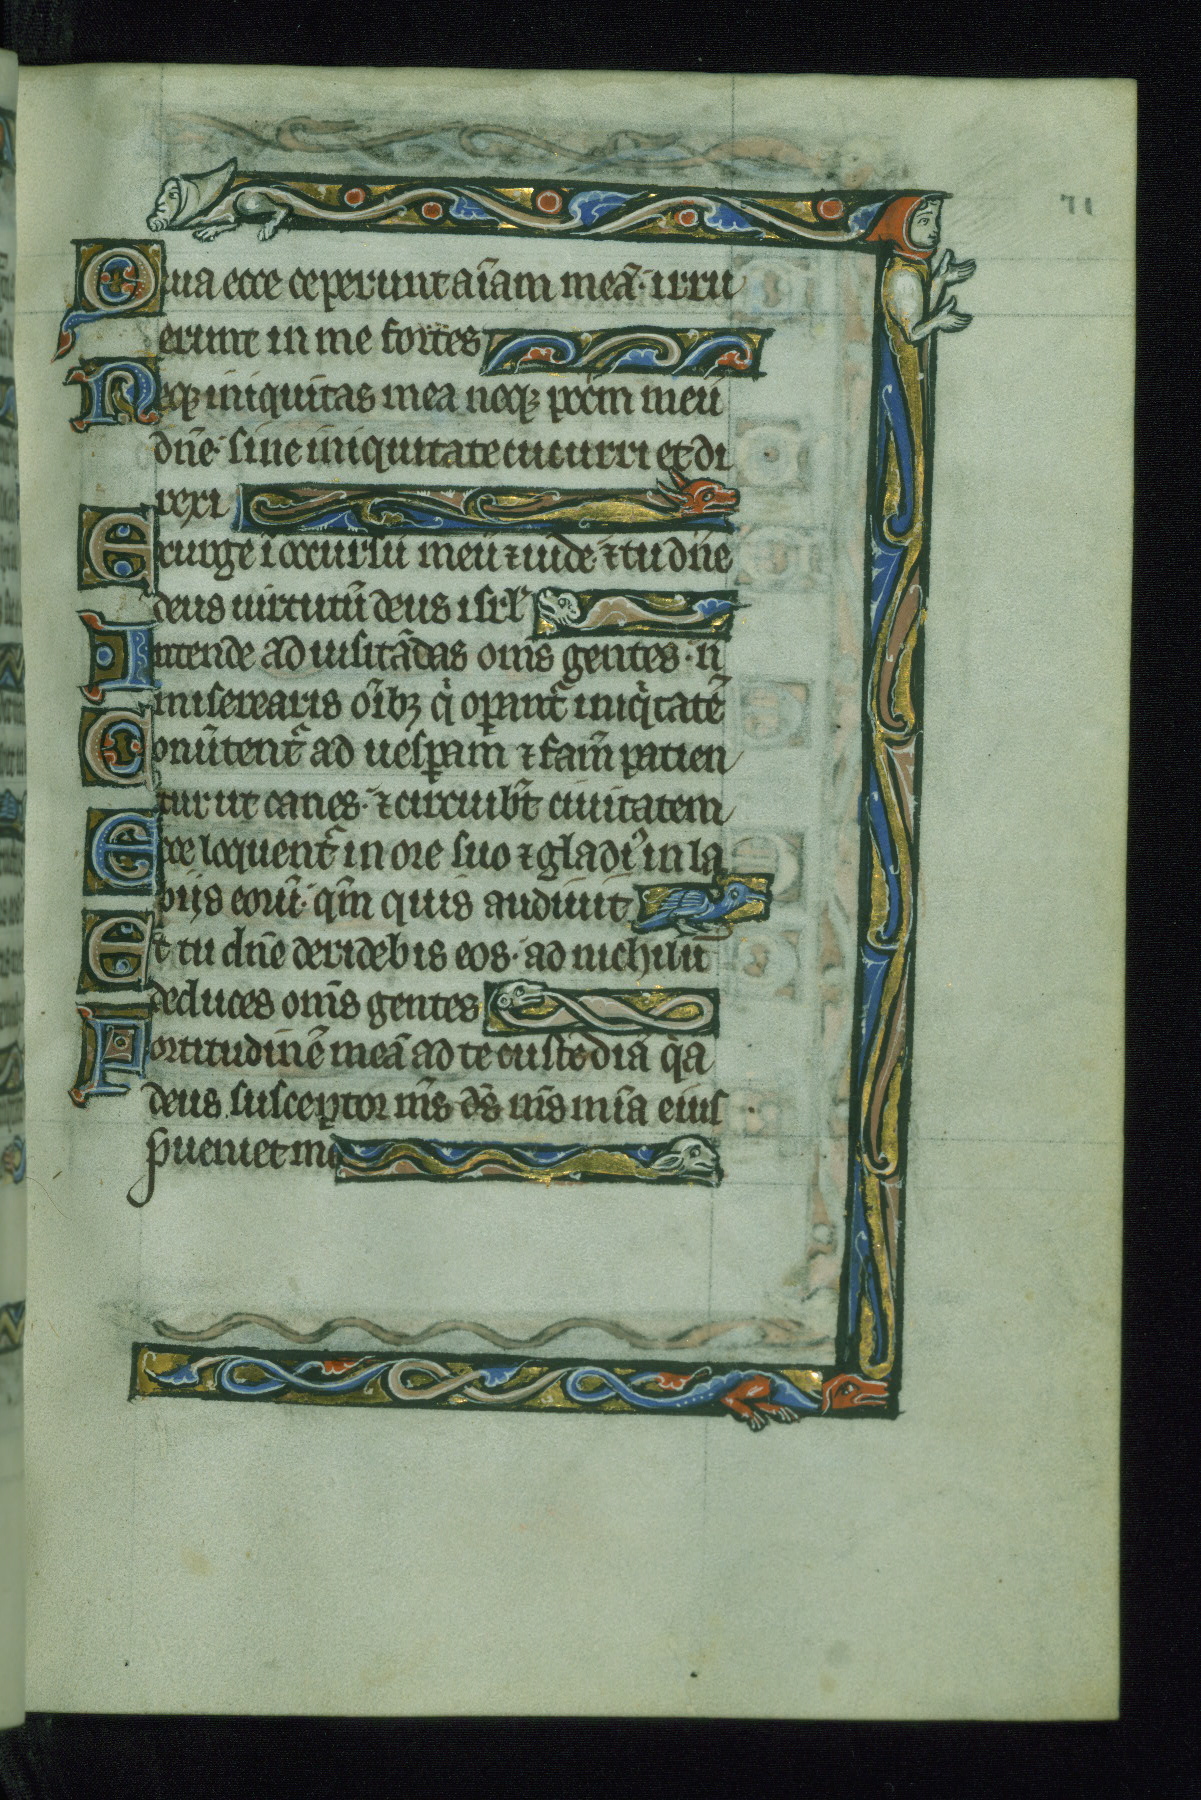 71
Quia ecce ceperunt aīam meā· irru
erunt in me fortes
Neqꝫ iniquitas mea neqꝫ pccm̄ meū
dn̄e· sine iniquitate cucurri et di
rexi
Exurge ī occursū meū ⁊ uide· ⁊ tu dn̄e
deus uirtutū deus isrl̄
Intende ad uisitādas om̄s gentes· n̄
miserearis oībꝫ q̄ operant̄ iniq̄tatē
Conūtent̄ ad uesꝑam ⁊ famē patien
tur ut canes· ⁊ circuibt̄ ciuitatem
Ecce loquent̄ in ore suo ⁊ gladiꝰ in la
biis eorū· qm̄ quis audiuit
Et tu dn̄e deridebis eos· ad nichilū
deduces om̄s gentes
Fortitudinē meā ad te custodiā q̄a
deus susceptor m̄s d̄s m̄s mīa eius
p̄ueniet me